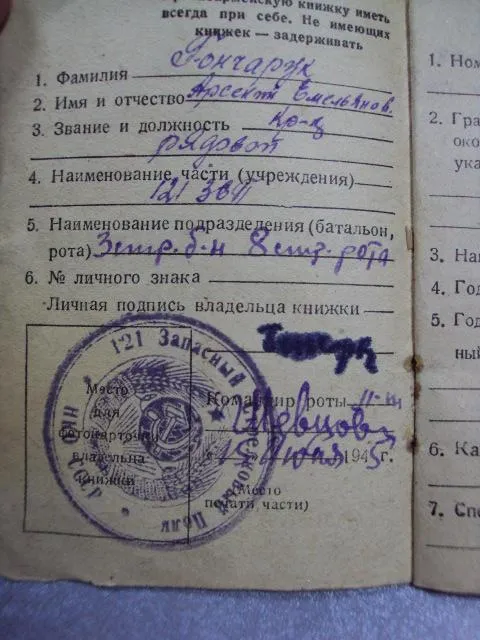 книжку иметь
всегда при себе. Не имеющих
книжек — задерживать
1. Фамилия Гончарук
2. Имя и отчество Арсентий Емельянов.
3. Звание и должность Кр-ц
рядовой
4. Наименование части (учреждения)
121 ЗСП
5. Наименование подразделения (батальон,
рота) 3 стр. б-н 8 стр. рота
6. № личного знака
Личная подпись владельца книжки
Место
для
фотокарточки
владельца
книжки
Командир роты
Шевцов
1945 г.
(Место
печати части)
121 Запасный Стрелковый Полк
НКО СССР
1. Ном
2. Гра
око
ука
3. На
4. Год
5. Год
ный
6. Ка
7. Спе